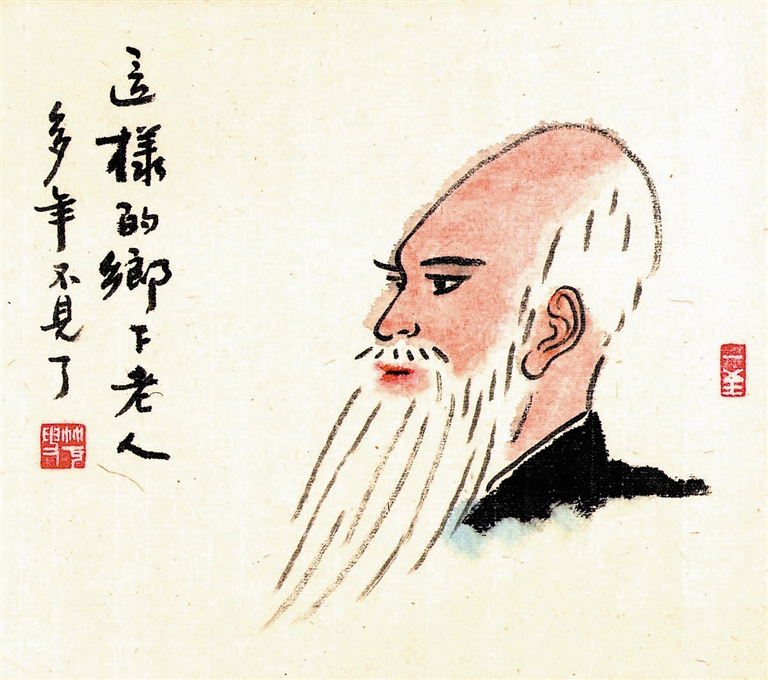 這樣的鄉下老人
多年不見了